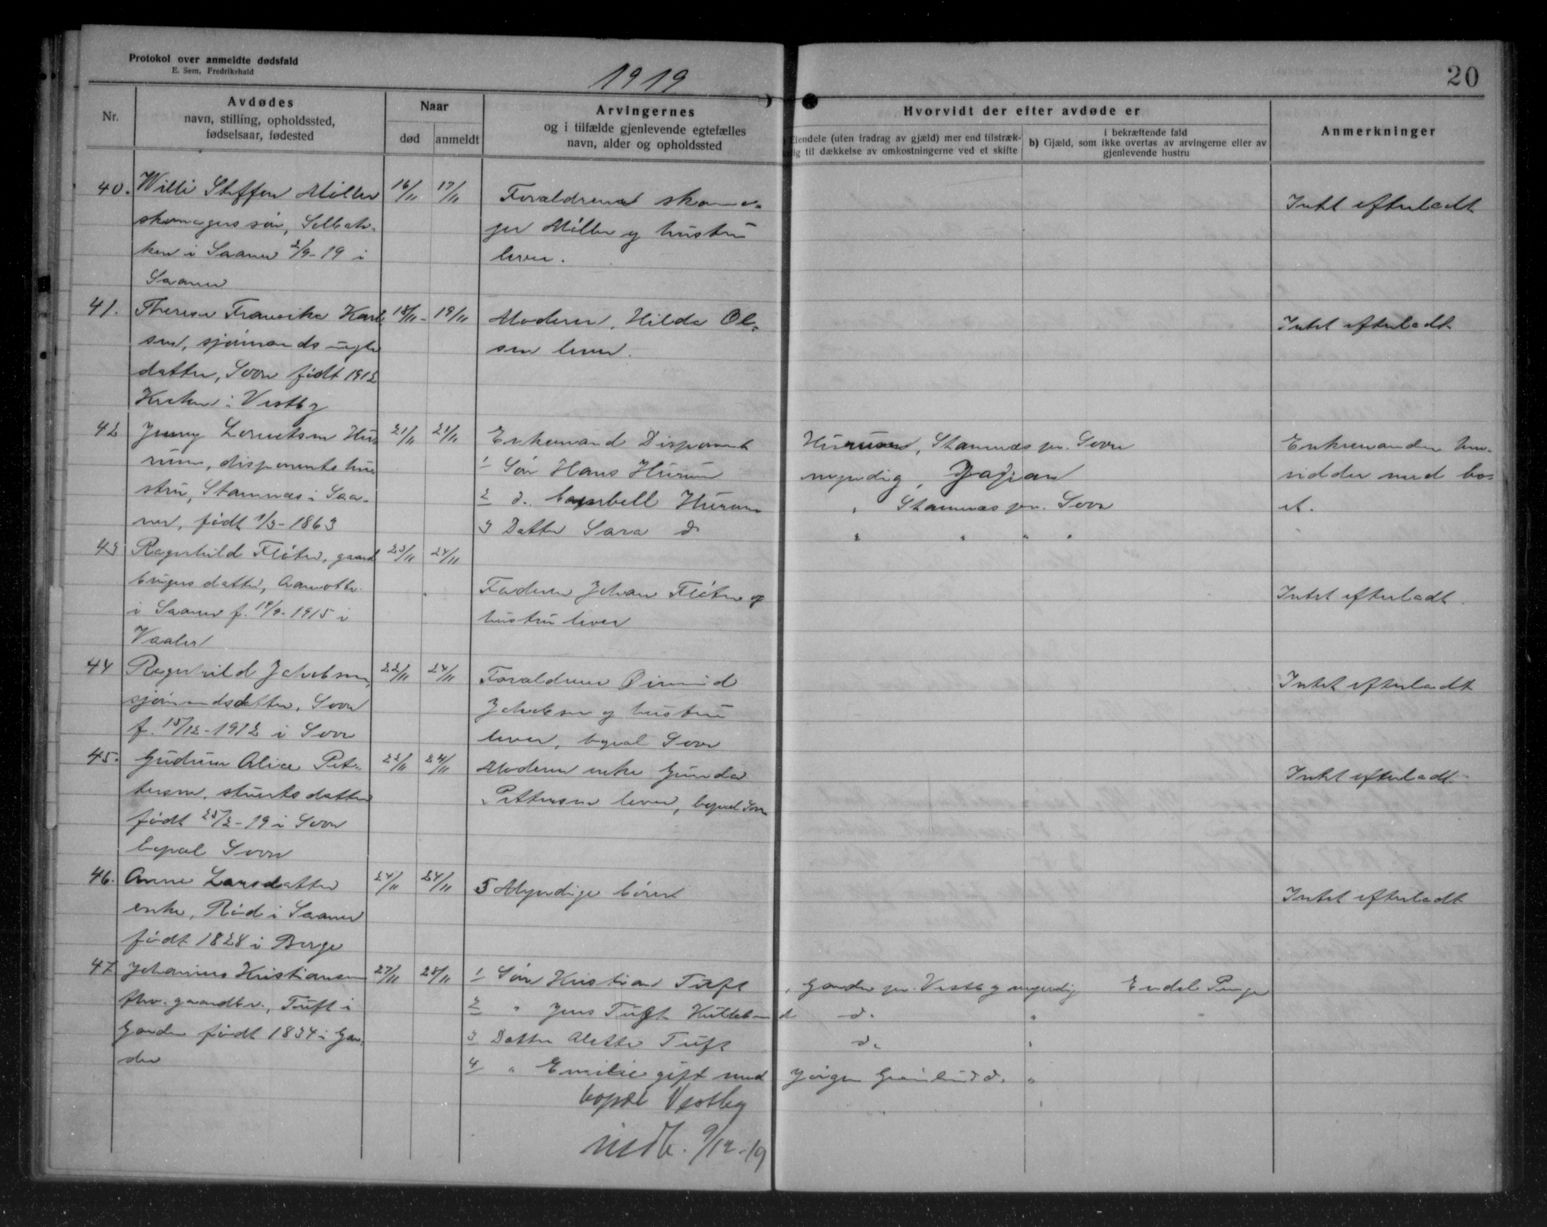 Protokol over anmeldte dødsfald
E. Sem, Fredrikshald
1919
20
Nr.
Avdødes
navn, stilling, opholdssted,
fødselsaar, fødested
Naar
død
anmeldt
Arvingernes
og i tilfælde gjenlevende egtefælles
navn, alder og opholdssted
Hvorvidt der efter avdøde er
Eiendele (uten fradrag av gjæld) mer end tilstræk-
lig til dækkelse av omkostningerne ved et skifte
i bekræftende fald
b) Gjæld, som ikke overtas av arvingerne eller av
gjenlevende hustru
Anmerkninger
40. Willi Steffen Møller 16/11 17/11 Forældrene skoma- Intet efterladt
skomagers søn, ger Møller og hustru
ken i Saaner 2/9-19 i lever.
Saaner
41. Therese Fransiska Karl- 18/11 19/11 Moderen, Hilda Ol- Intet efterladt
sen, sjømands uegte sen lever.
datter, Soon født 1912
i Vestby
42 Jenny Lorentsen Hu- 21/11 21/11 Enkemand Disponent Hurum, Stamnæs pr. Soon Enkemanden hen-
rum, disponents hu- 1 Søn Hans Hurum myndig, Japan sidder med bo-
stru, Stamnæs i Saa- 2 d. Hurum " Stamnæs pr. Soon et.
ner, født 1/3-1863 3 Datter Sara d " " " "
43 Ragnhild Fløter, gaard- 23/11 24/11
brugers datter, Faderen Johan Fløter og Intet efterladt
i Saaner f. 19/9-1915 i hustru lever
Vaaler
44 Ragnhild Jakobsen, 22/11 24/11 Forældrene Intet efterladt
sjømandsdatter, Soon Jakobsen og hustru
f. 15/12-1912 i Soon lever, bopæl Soon
45. Gudrun Alice Pet- 22/11 24/11 Moderen enke Gunda Intet efterladt
tersen, stuerts datter Pettersen lever, bopæl Soon
født 25/2-19 i Soon
bopæl Soon
46. Anne Larsdatter 24/11 24/11 5 Myndige børn Intet efterladt
enke, Rød i Saaner
født 1828 i Berge
47 Johannes Kristiansen 27/11 28/11 1 Søn Kristian Tuft, Garder pr. Vestby myndig Endel Penge
fhv. gaardbr., Tuft i 2 " Jens Tuft d. "
Garder født 1834 i Gar- 3 Datter Alette Tuft d. "
der 4 " Emilie gift med Jørgen d. "
bopæl Vestby
indb. 9/12-19